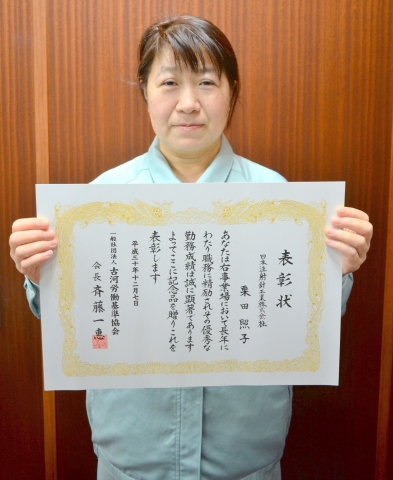 表彰状
日本注射針工業株式会社
栗田照子
あなたは右事業場において長年に
わたり職務に精励されその優秀な
勤務成績は誠に顕著であります
よってここに記念品を贈りこれを
表彰します
平成三十年十二月七日
一般社団法人古河労働基準協会
会長斉藤一惠